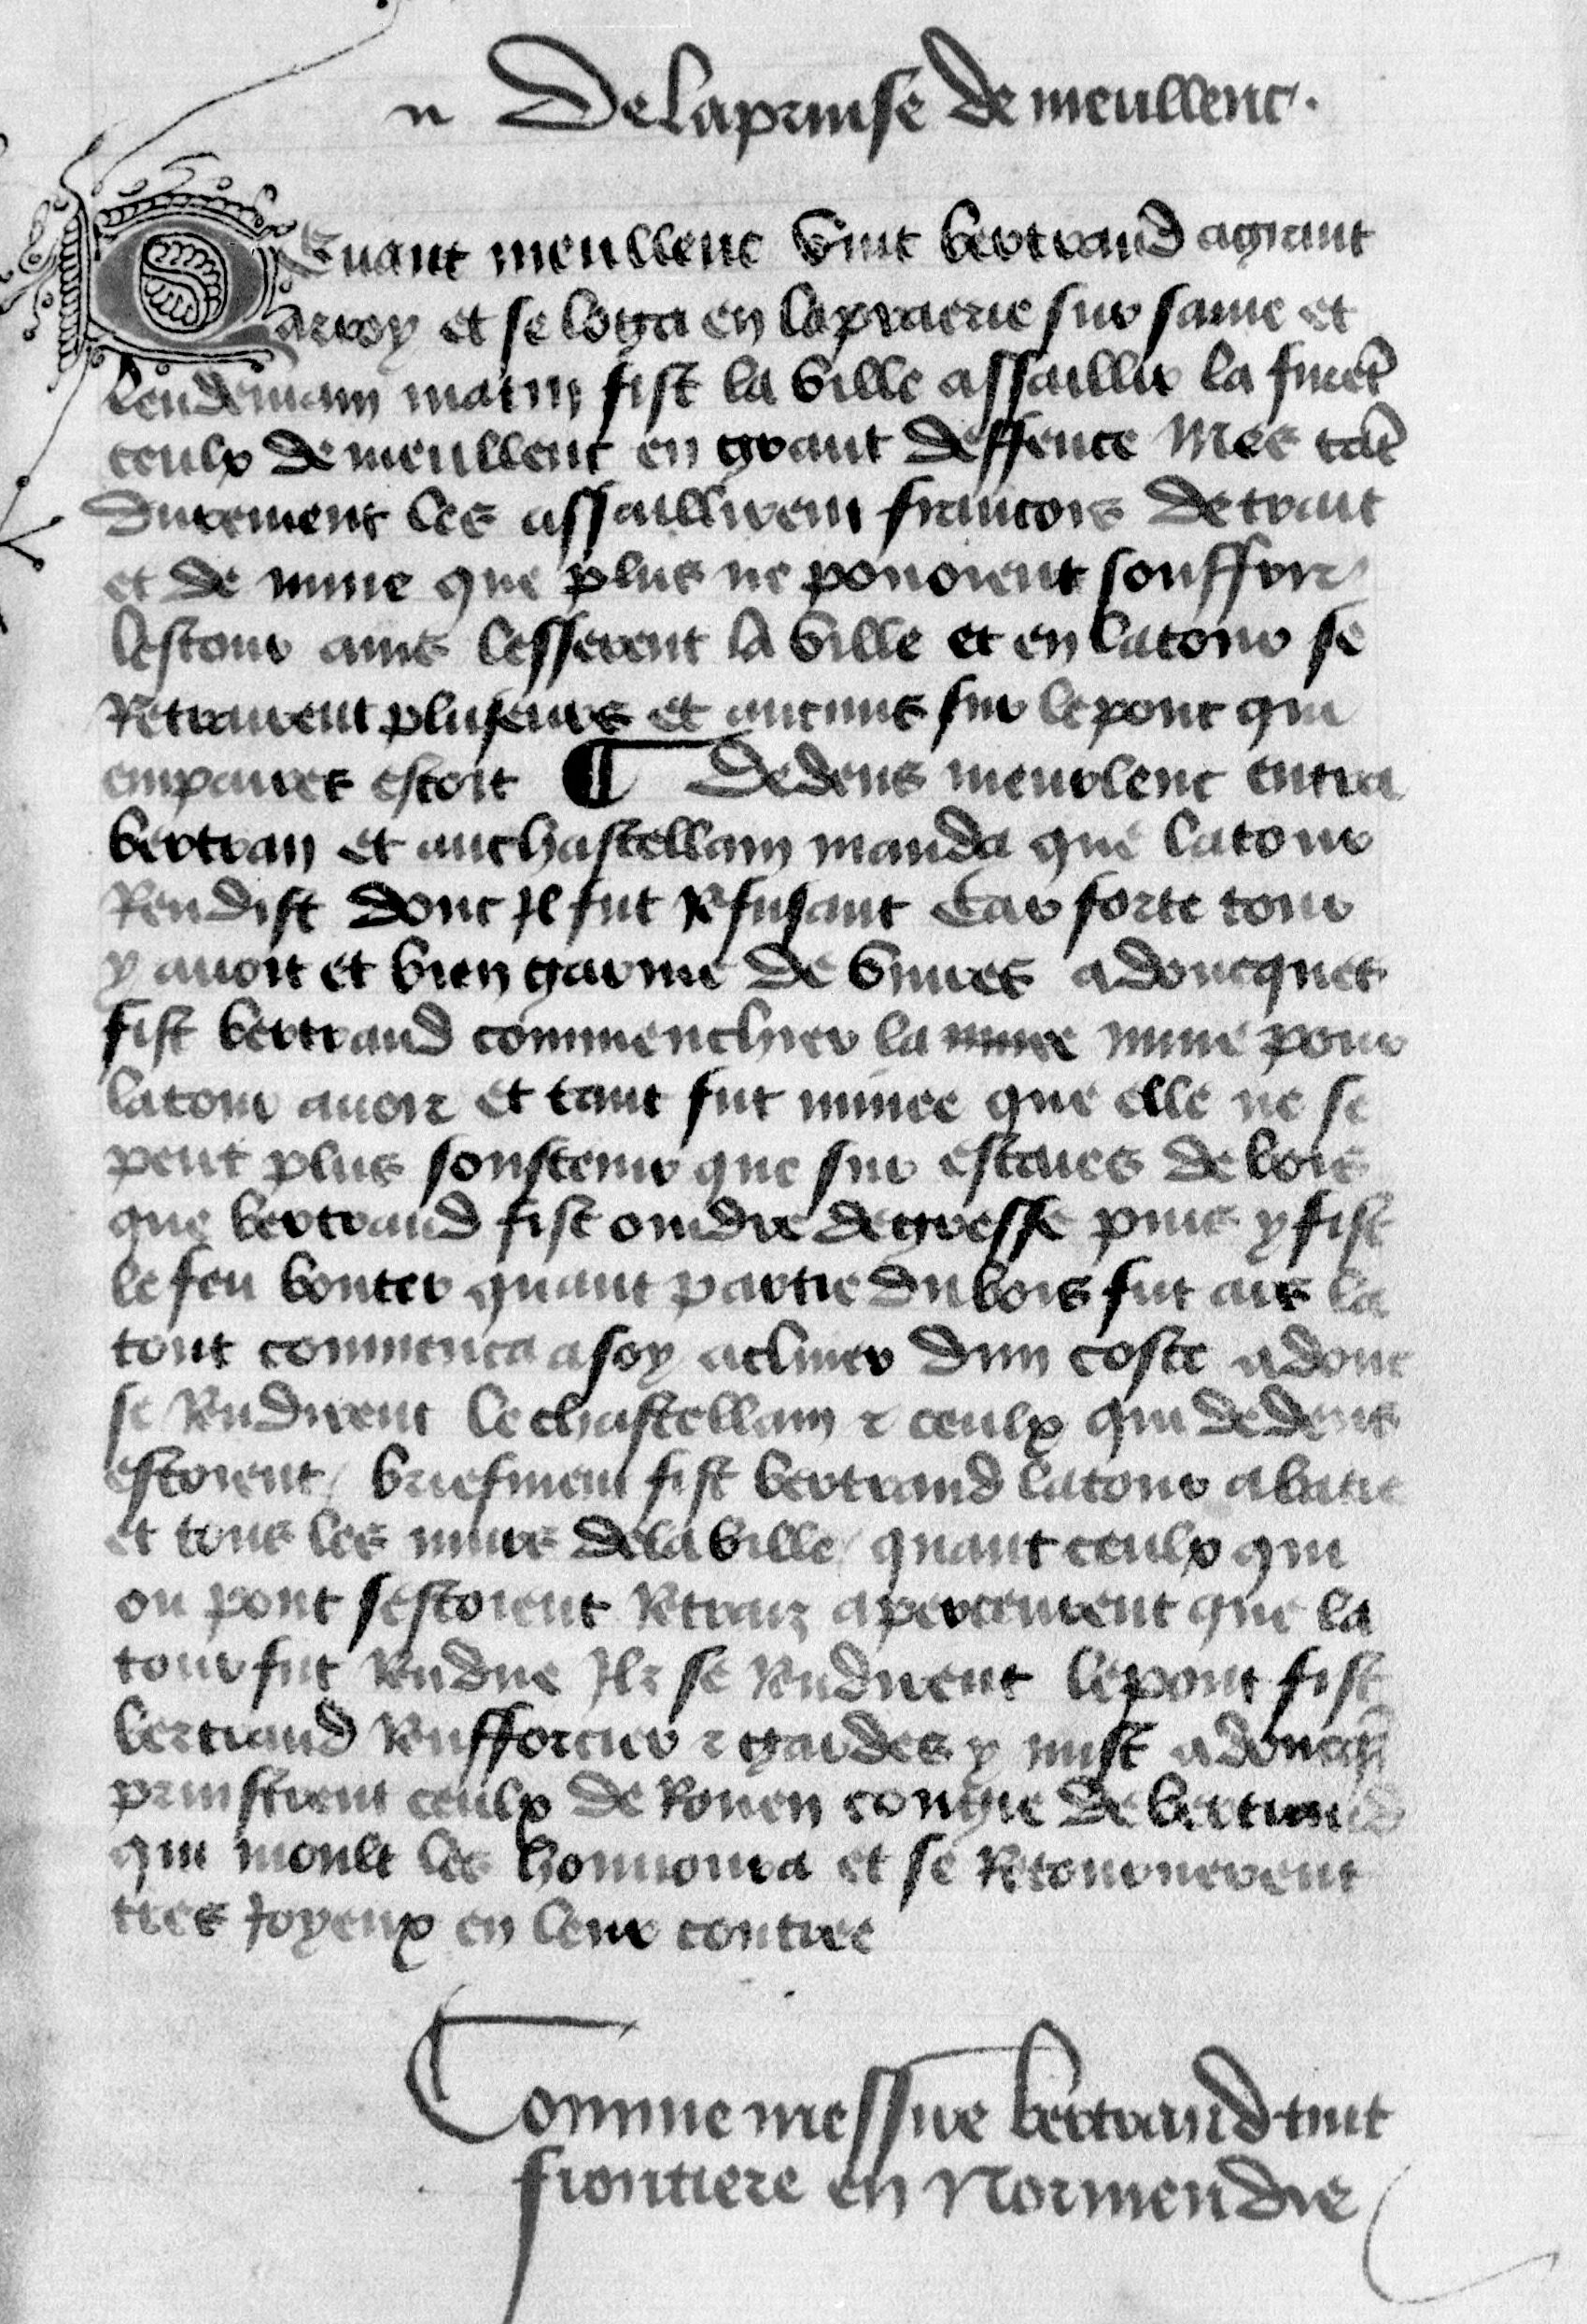 De la prinse de meullenc.
DEuant meullenc vint bertrand a grant
arroy et se loga en la praerie sur saine et
lendemain matin fist la ville assaillir la furẽt
ceulx de meullenc en grant deffence Mes tãt
durement les assaillirent francois de trait
et de mine que plus ne pouoient souffrir
lestour ains lesserent la ville et en la tour se
Retrairent pluseurs et aucuns sur le pont qui
empares estoit ¶ Dedens meurlenc entra
bertran et au chastellain manda que la tour
Rendist donc Il fut Refusant Car forte tour
y auoit et bien garnie de viures adoncques
fist bertrand commenchier la mine pour
la tour auoir et tant fut minee que elle ne se
peut plus soustenir que sur estaies de bois
que bertrand fist oindre de gresse puis y fist
le feu bouter quant partie du bois fut ars la
tour commenca a soy acliner dun coste adonc
se Rendirent le chastellain ⁊ ceulx qui dedens
estoient / briefment fist bertrand la tour abatre
et tous les murs de la ville / quant ceulx qui
ou pont sestoient Retraiz aperceurent que la
tour fut Rendue Ilz se Rendirent le pont fist
bertrand Renfforcier ⁊ gardes y mist adoncq̃
prinstrent ceulx de Rouen congie de bertrand
qui moult les honnoura et se Retournerent
tres Joyeux en leur contree
Comme messire bertrand tint
frontiere en Normendie